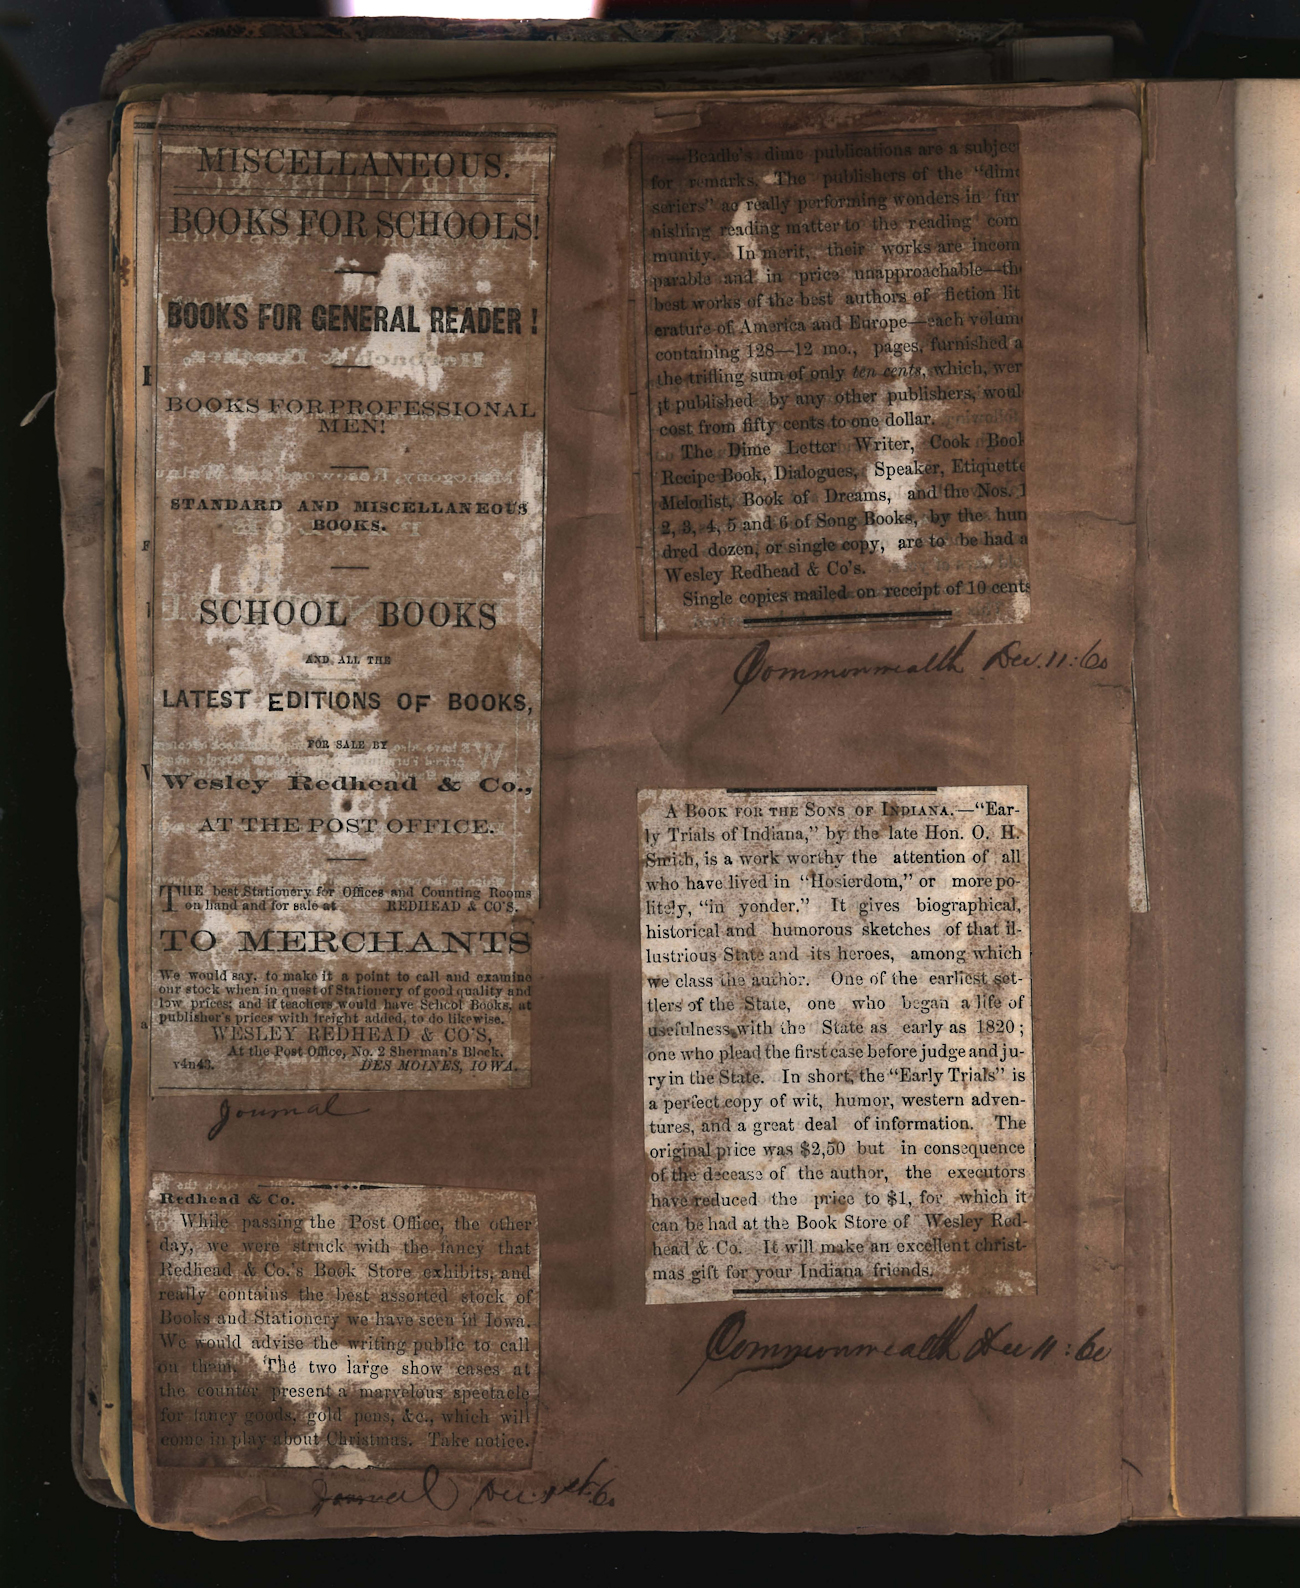 MISCELLANEOUS.
BOOKS FOR SCHOOLS!
BOOKS FOR GENERAL READER!
BOOKS FOR PROFESSIONAL
MEN!
STANDARD AND MISCELLANEOUS
BOOKS.
SCHOOL BOOKS
AND ALL THE
LATEST EDITIONS OF BOOKS,
FOR SALE BY
Wesley Redhead & Co.,
AT THE POST OFFICE.
THE best Stationery for Offices and Counting Rooms
on hand and for sale at REDHEAD & CO'S.
TO MERCHANTS
We would say, to make it a point to call and examine
our stock when in quest of Stationery of good quality and
low prices; and if teachers would have School Books, at
publisher's prices with freight added, to do likewise.
WESLEY REDHEAD & CO'S,
At the Post Office, No. 2 Sherman's Block,
v4n43. DES MOINES, IOWA.
Journal
Redhead & Co.
While passing the Post Office, the other
day, we were struck with the fancy that
Redhead & Co.'s Book Store exhibits, and
really contains the best assorted stock of
Books and Stationery we have seen in Iowa.
We would advise the writing public to call
on them. The two large show cases at
the counter present a marvelous spectacle
for fancy goods, gold pens, &c., which will
come in play about Christmas. Take notice.
Journal Dec. 60
—Beadle's dime publications are a subjec
for remarks. The publishers of the "dime
seriers" ae really performing wonders in fur
nishing reading matter to the reading com
munity. In merit, their works are incom
parable and in price unapproachable—th
best works of the best authors of fiction lit
erature of America and Europe—each volum
containing 128—12 mo., pages, furnished a
the trifling sum of only ten cents, which, wer
it published by any other publishers, woul
cost from fifty cents to one dollar.
The Dime Letter Writer, Cook Book
Recipe Book, Dialogues, Speaker, Etiquette
Melodist, Book of Dreams, and the Nos. 1
2, 3, 4, 5 and 6 of Song Books, by the hun
dred dozen, or single copy, are to be had a
Wesley Redhead & Co's.
Single copies mailed on receipt of 10 cents
Commonwealth Dec. 11: 60
A BOOK FOR THE SONS OF INDIANA.—"Ear-
ly Trials of Indiana," by the late Hon. O. H.
Smith, is a work worthy the attention of all
who have lived in "Hosierdom," or more po-
litely, "in yonder." It gives biographical,
historical and humorous sketches of that il-
lustrious State and its heroes, among which
we class the author. One of the earliest set-
tlers of the State, one who began a life of
usefulness with the State as early as 1820;
one who plead the first case before judge and ju-
ry in the State. In short, the "Early Trials" is
a perfect copy of wit, humor, western adven-
tures, and a great deal of information. The
original price was $2,50 but in consequence
of the decease of the author, the executors
have reduced the price to $1, for which it
can be had at the Book Store of Wesley Red-
head & Co. It will make an excellent christ-
mas gift for your Indiana friends.
Commonwealth Dec 11: 60